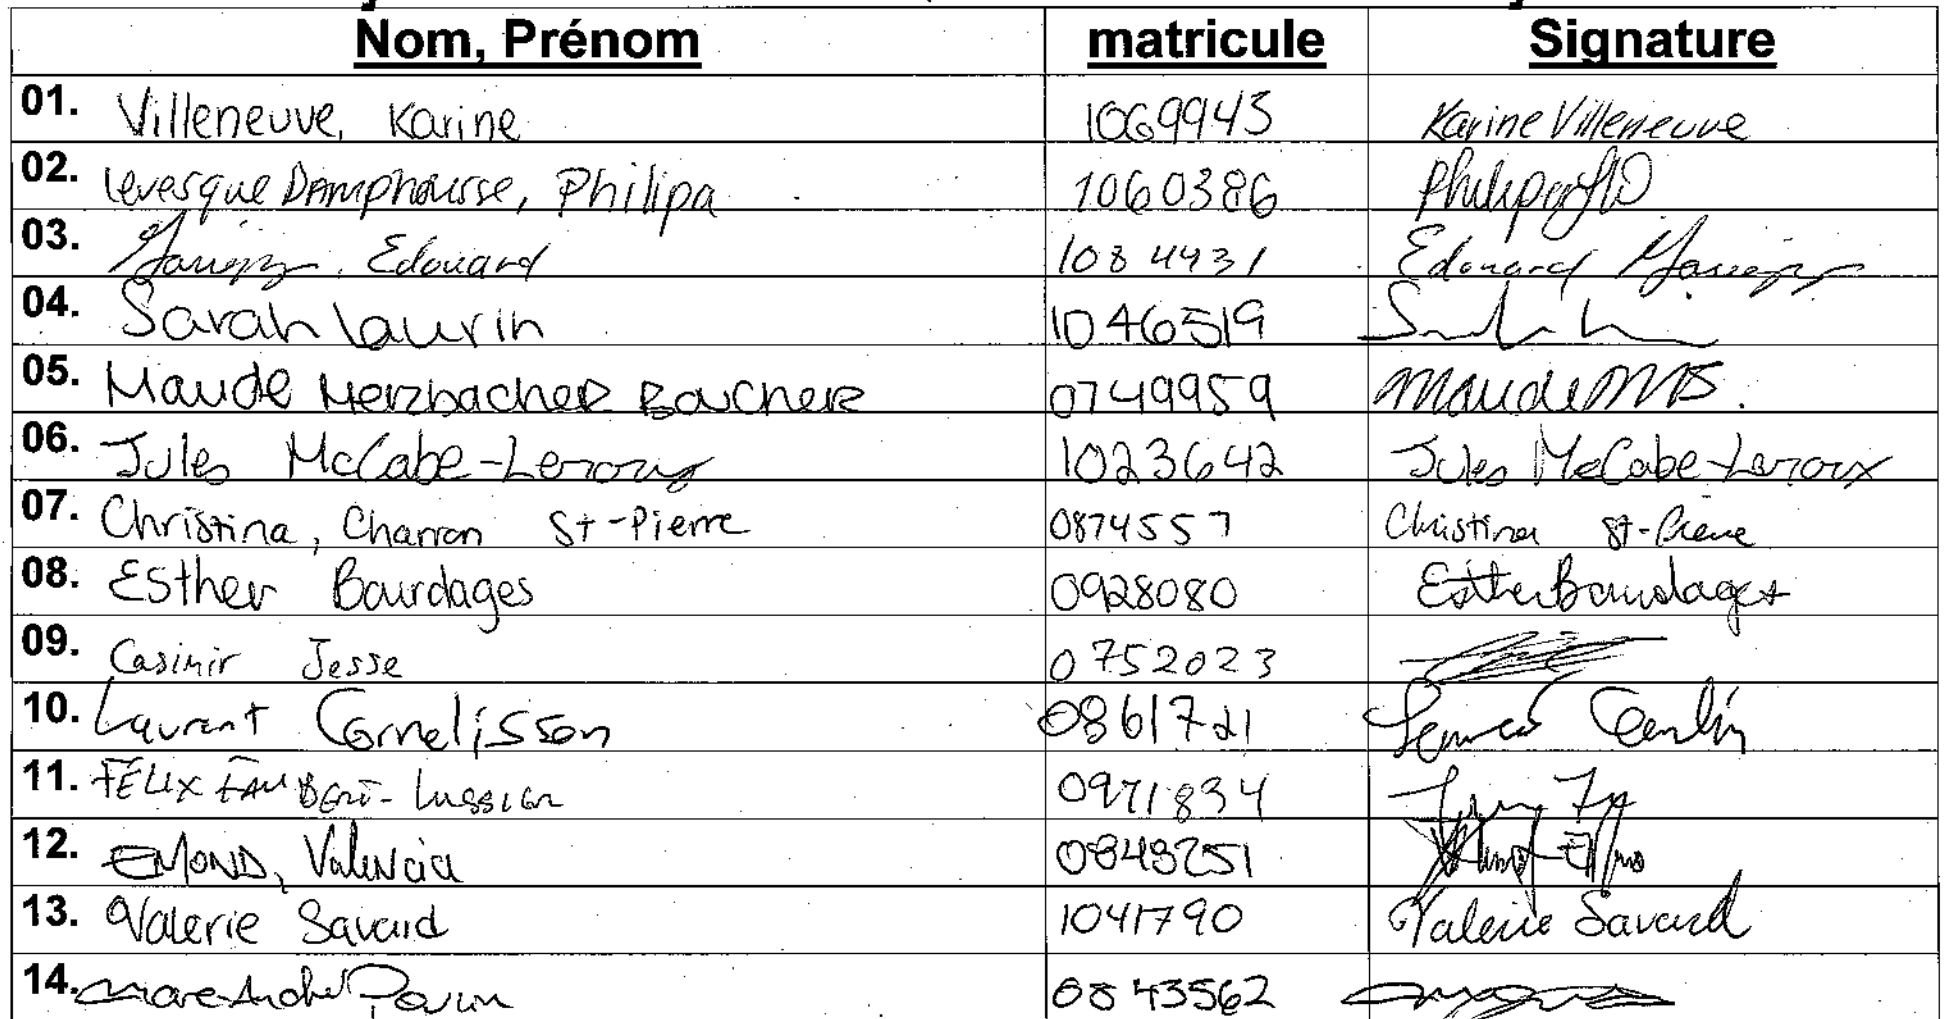 Nom, Prénom matricule Signature
01. Villeneuve, Karine 1069943 Karine Villeneuve
02. Levesque Damphousse, Philipa 1060386
03. Edouard 1084431 Edouard
04. Sarah Laurin 1046519
05. Maude Merzbacher Boucher 0749959 Maude MB.
06. Jules McCabe-Leroux 1023642 Jules McCabe-Leroux
07. Christina, Charron St-Pierre 0874557 Christina St-Pierre
08. Esther Bourdages 0928080 Esther Bourdages
09. Casimir Jesse 0752023
10. Laurent Cornelissen 0861721
11. FÉLIX Lussier 0971834
12. EMOND, Valencia 0843251
13. Valerie Savard 1041790 Valerie Savard
14. 0843562